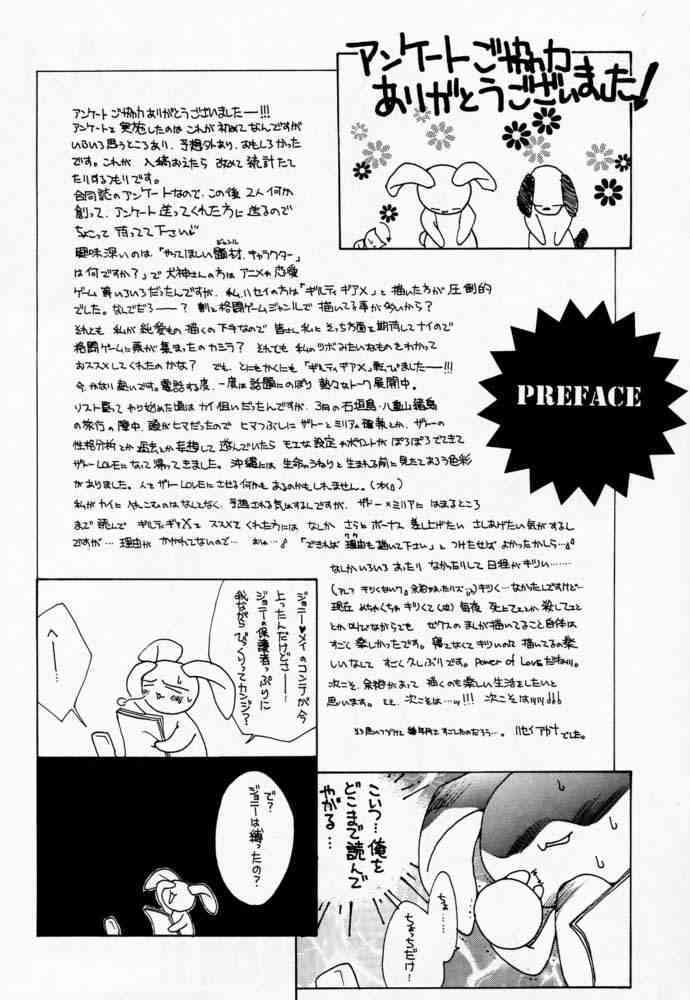 アンケートご協力
ありがとうございました!
アンケートご協力ありがとうございました―!!!
アンケートを実施したのは これが初めてなんですが
いろいろ思うところあり、予想外あり、おもしろかった
です。これが、入稿おえたら 改めて統計たて
たりするつもりです。
合同誌のアンケートなので、この後 2人で何か
創って、アンケート送ってくれた方に送るので
ちょこっと 待ってて下さい
興味深いのは「やってほしい題材、キャラクター
ジャンル
は何ですか?」で 犬神さんの方は アニメや恋愛
ゲーム 等いろいろだったんですが、私、ハセイの方は「ギルティギアX」と描いた方が圧倒的
でした。なんでだろ―?
それとも 私が純愛もの描くの下手なので 皆さん私に そっち方面を期待してナイので
格闘ゲームに票が集まったのかしら? それとも 私のツボみたいなものをわかって
おススメしてくれたのかな? でも、ともかくにも「ギルティギアX」転びました―!!!
今、かなり熱いです。電話する度、一度は話題にのぼり 熱いトーク展開中。
リスト見て やり始めた頃は カイ狙いだったんですが、3月の石垣島・八重山諸島
の旅行の際中、頭がヒマだったので ヒマつぶしに ザトーとミリアの
性格分析とか 過去とか妄想して 遊んでいたら モエな設定やポイントが ぽろぽろでてきて
ザトーLOVEになって帰ってきました。沖縄には 生命のうねりと 生まれる前に見たであろう色彩
がありました。人を ザトーLOVEにさせる何かも あるのかもしれません。
私がカイに
予想される気はするんですが、ザトー×ミリアに はまるところ
まで 読んで ギルティギアXを ススメてくれた方には なにかしら さらにボーナス差上げたい さしあげたい気がするん
ですが… 理由が かかれてないので…
「できれば 理由も描いて下さい」と つけたせば よかったかしら…
なにかしらいろいろ あったり なかったりして 日程がギリい……
現在 めちゃくちゃ ギリくて
毎夜 死ぬ
とか叫びながらでも セックスのまんが描いてること自体は
すごく楽しかったです。寝てなくてギリいのに 描いてるの楽
しいなんて すごく久しぶりです。Power of Loveだねぃ。
次こそ、余裕があって 描くのも楽しい生活をしたいと
思います。
次こそは…ッ!!! 次こそは
ハセイアガナ でした。
PREFACE
ジョニー♥メイのコンテが今
上ったんだけどさ―
ジョニーの保護者っぷりに
我ながら びっくりってカンジ?
へ―…
で?
ジョニーは縛ったの?
こいつ…俺を
どこまで読んで
やがる…
ちょ…
ちょっちだけ…